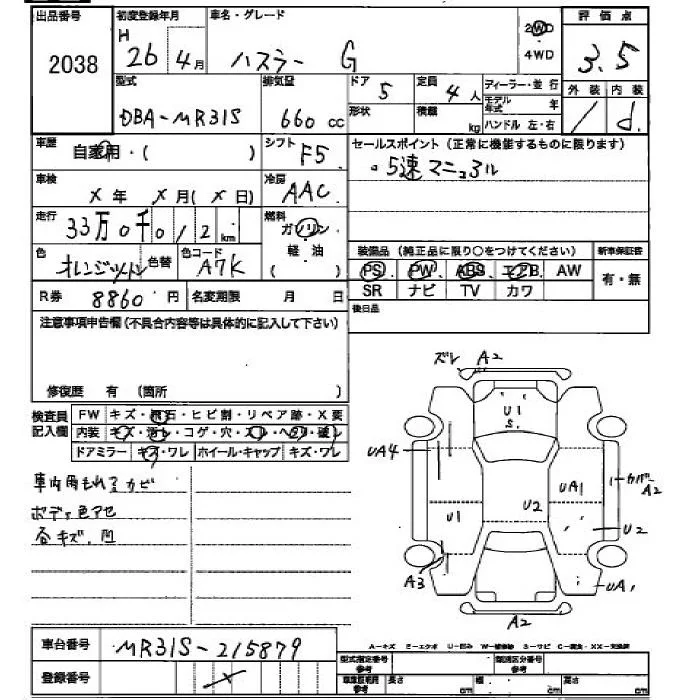 出品番号 初度登録年月 車名・グレード 評価点
2038 H 26年 4月 ハスラー G 2WD 4WD 3.5
型式 排気量 ドア 定員 ディーラー・並行 外装 内装
DBA-MR31S 660cc 5 4人 モデル年式 年 / d.
形状 積載 kg ハンドル 左・右
車歴 自家用・( ) シフト F5 セールスポイント(正常に機能するものに限ります)
車検 X年 X月(X日) 冷房 AAC 。5速マニュアル
走行 33万0千0 1 2 km 燃料 ガソリン
軽油
( )
色 オレンジツートン 色替 色コード A7K 装備品(純正品に限り○をつけてください) 新車保証書
PS PW ABS エアB AW 有・無
R券 8860円 名変期限 月 日 SR ナビ TV カワ
注意事項申告欄(不具合内容等は具体的に記入して下さい) 後日品
修復歴 有 (箇所 )
検査員記入欄 FW キズ・飛石・ヒビ割・リペア跡・X要
内装 キズ・汚レ・コゲ・穴・スレ・ヘタリ・破レ
ドアミラー キズ・ワレ ホイール・キャップ キズ・ワレ
車内 カビ
ボディ色アセ
各キズ、凹
ズレ A2
U1
S.
UA4
UA1
カバー A2
U1
U2
U2
A3
UA1
A2
車台番号 MR31S-215879
A-キズ E-エクボ U-凹み
登録番号 X
型式指定番号 参考 類別区分番号 参考
長さ cm 幅 cm 高さ cm